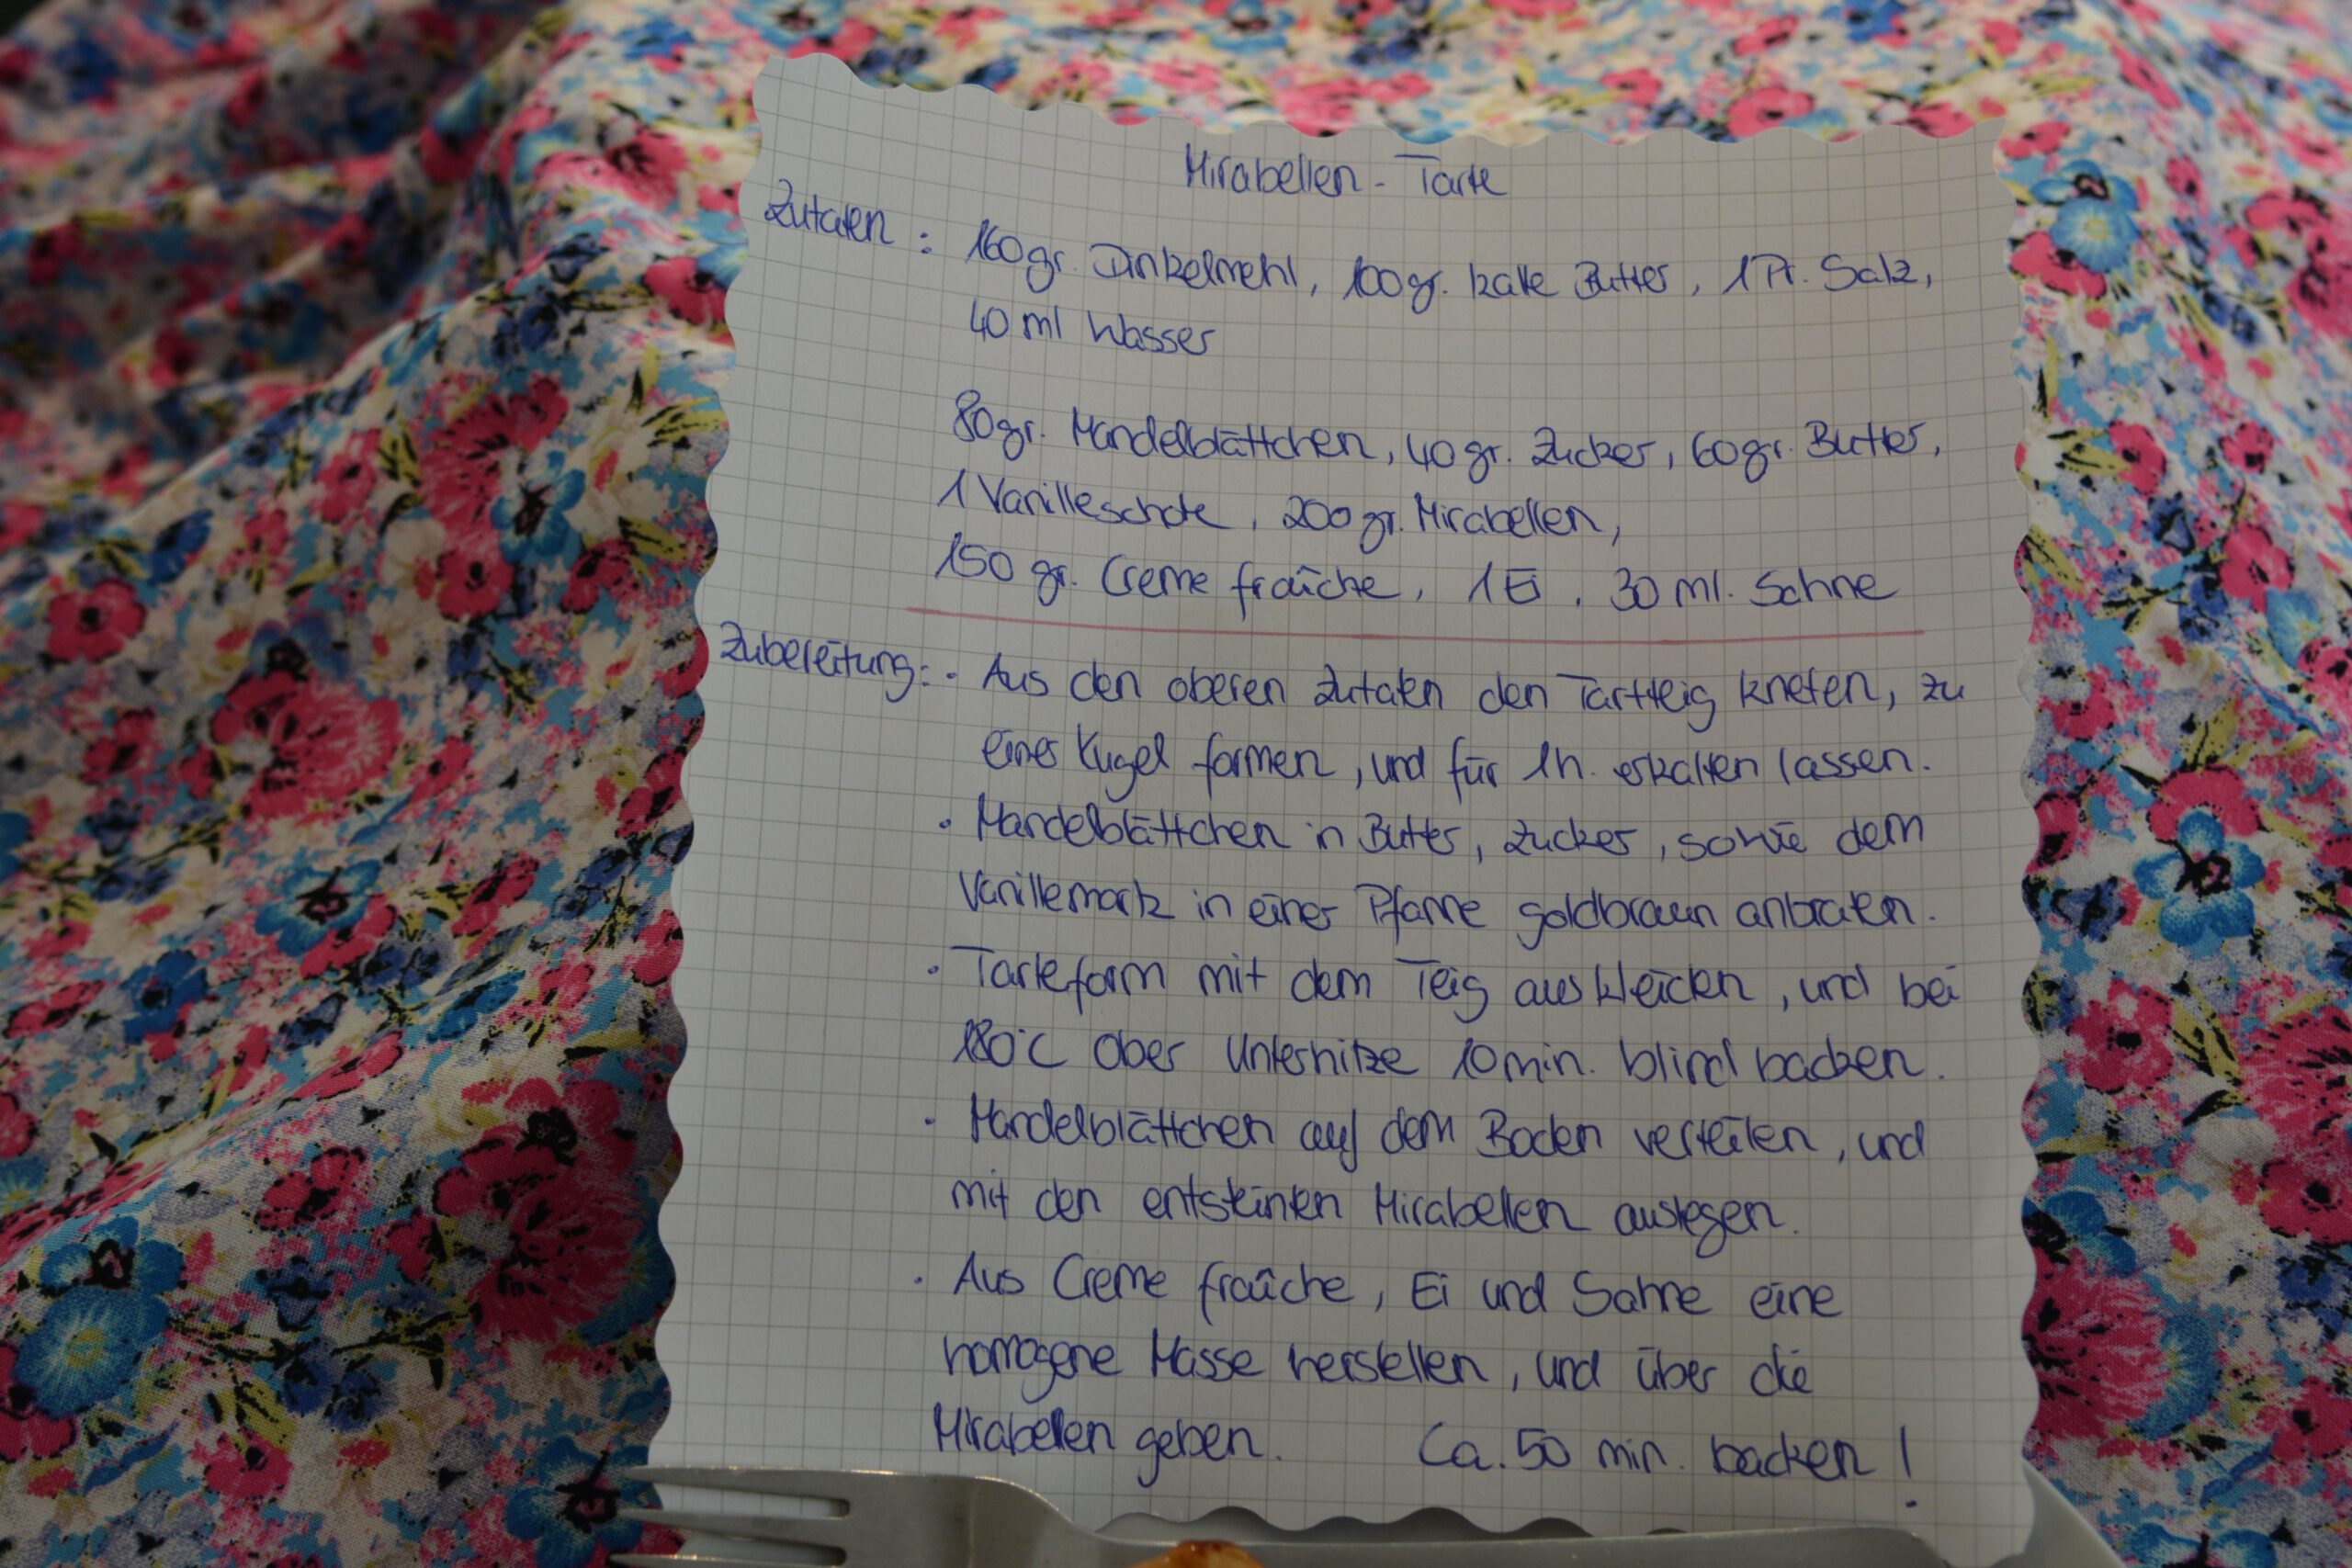 Mirabellen - Tarte
Zutaten : 160gr. Dinkelmehl, 100gr. kalte Butter, 1 Pr. Salz,
40 ml Wasser
80gr. Mandelblättchen, 40gr. Zucker, 60gr. Butter,
1 Vanilleschote, 200gr. Mirabellen,
150 gr. Creme fraîche, 1 Ei, 30 ml. Sahne
Zubereitung: · Aus den oberen Zutaten den Tartteig kneten, zu
einer Kugel formen, und für 1h. erkalten lassen.
· Mandelblättchen in Butter, Zucker, sowie dem
Vanillemark in einer Pfanne goldbraun anbraten.
· Tarteform mit dem Teig auskleiden, und bei
180°C Ober Unterhitze 10min. blind backen.
· Mandelblättchen auf dem Boden verteilen, und
mit den entsteinten Mirabellen auslegen.
· Aus Creme fraîche, Ei und Sahne eine
homogene Masse herstellen, und über die
Mirabellen geben. Ca. 50 min. backen!